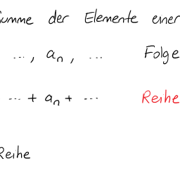 Summe der Elemente einer
..., aₙ, ... Folge
... + aₙ + ... Reihe
Reihe